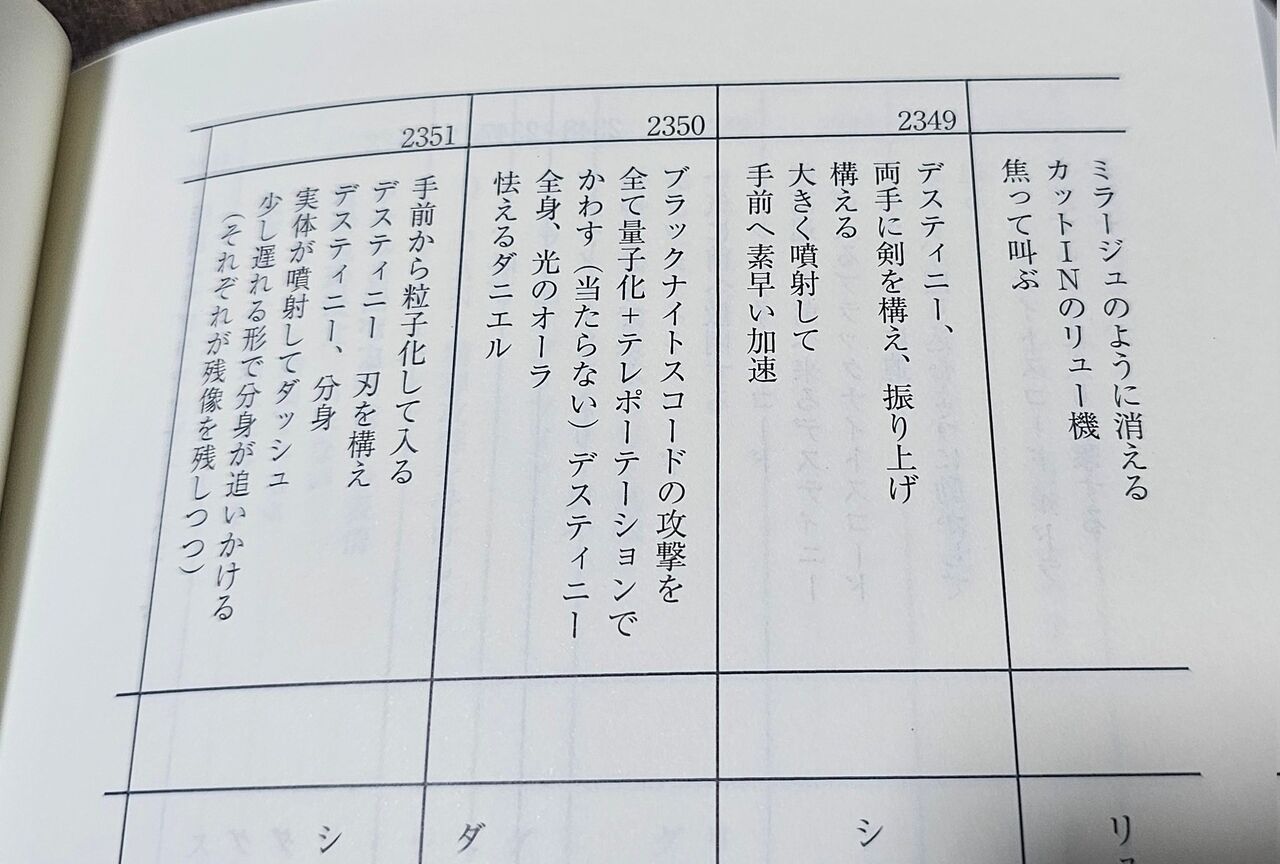 ミラージュのように消える
カットINのリュー機
焦って叫ぶ
2349
デスティニー、
両手に剣を構え、振り上げ
構える
大きく噴射して
手前へ素早い加速
2350
ブラックナイトスコードの攻撃を
全て量子化+テレポーテーションで
かわす（当たらない）デスティニー
全身、光のオーラ
怯えるダニエル
2351
手前から粒子化して入る
デスティニー 刃を構え
デスティニー、分身
実体が噴射してダッシュ
少し遅れる形で分身が追いかける
（それぞれが残像を残しつつ）
リュ
シ
ダ
シ